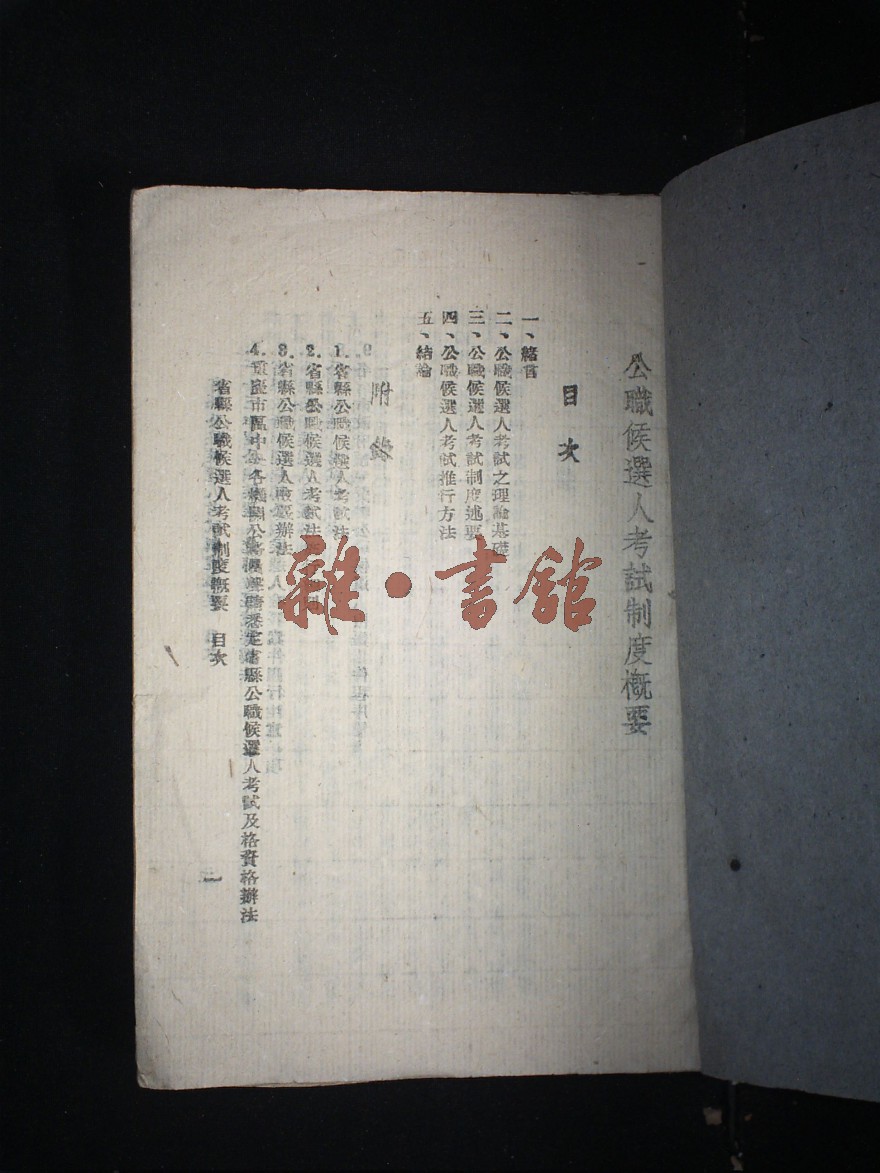 公職候選人考試制度概要
目次
一、緒言
二、公職候選人考試之理論基礎
三、公職候選人考試制度述要
四、公職候選人考試推行方法
五、結論
附錄
1.省縣公職候選人考試法
2.省縣公職候選人考試法
3.省縣公職候選人檢覈辦法
4.重慶市區中各機關公 省縣公職候選人考試及格資格辦法
省縣公職候選人考試制度概要 目次
雜·書館